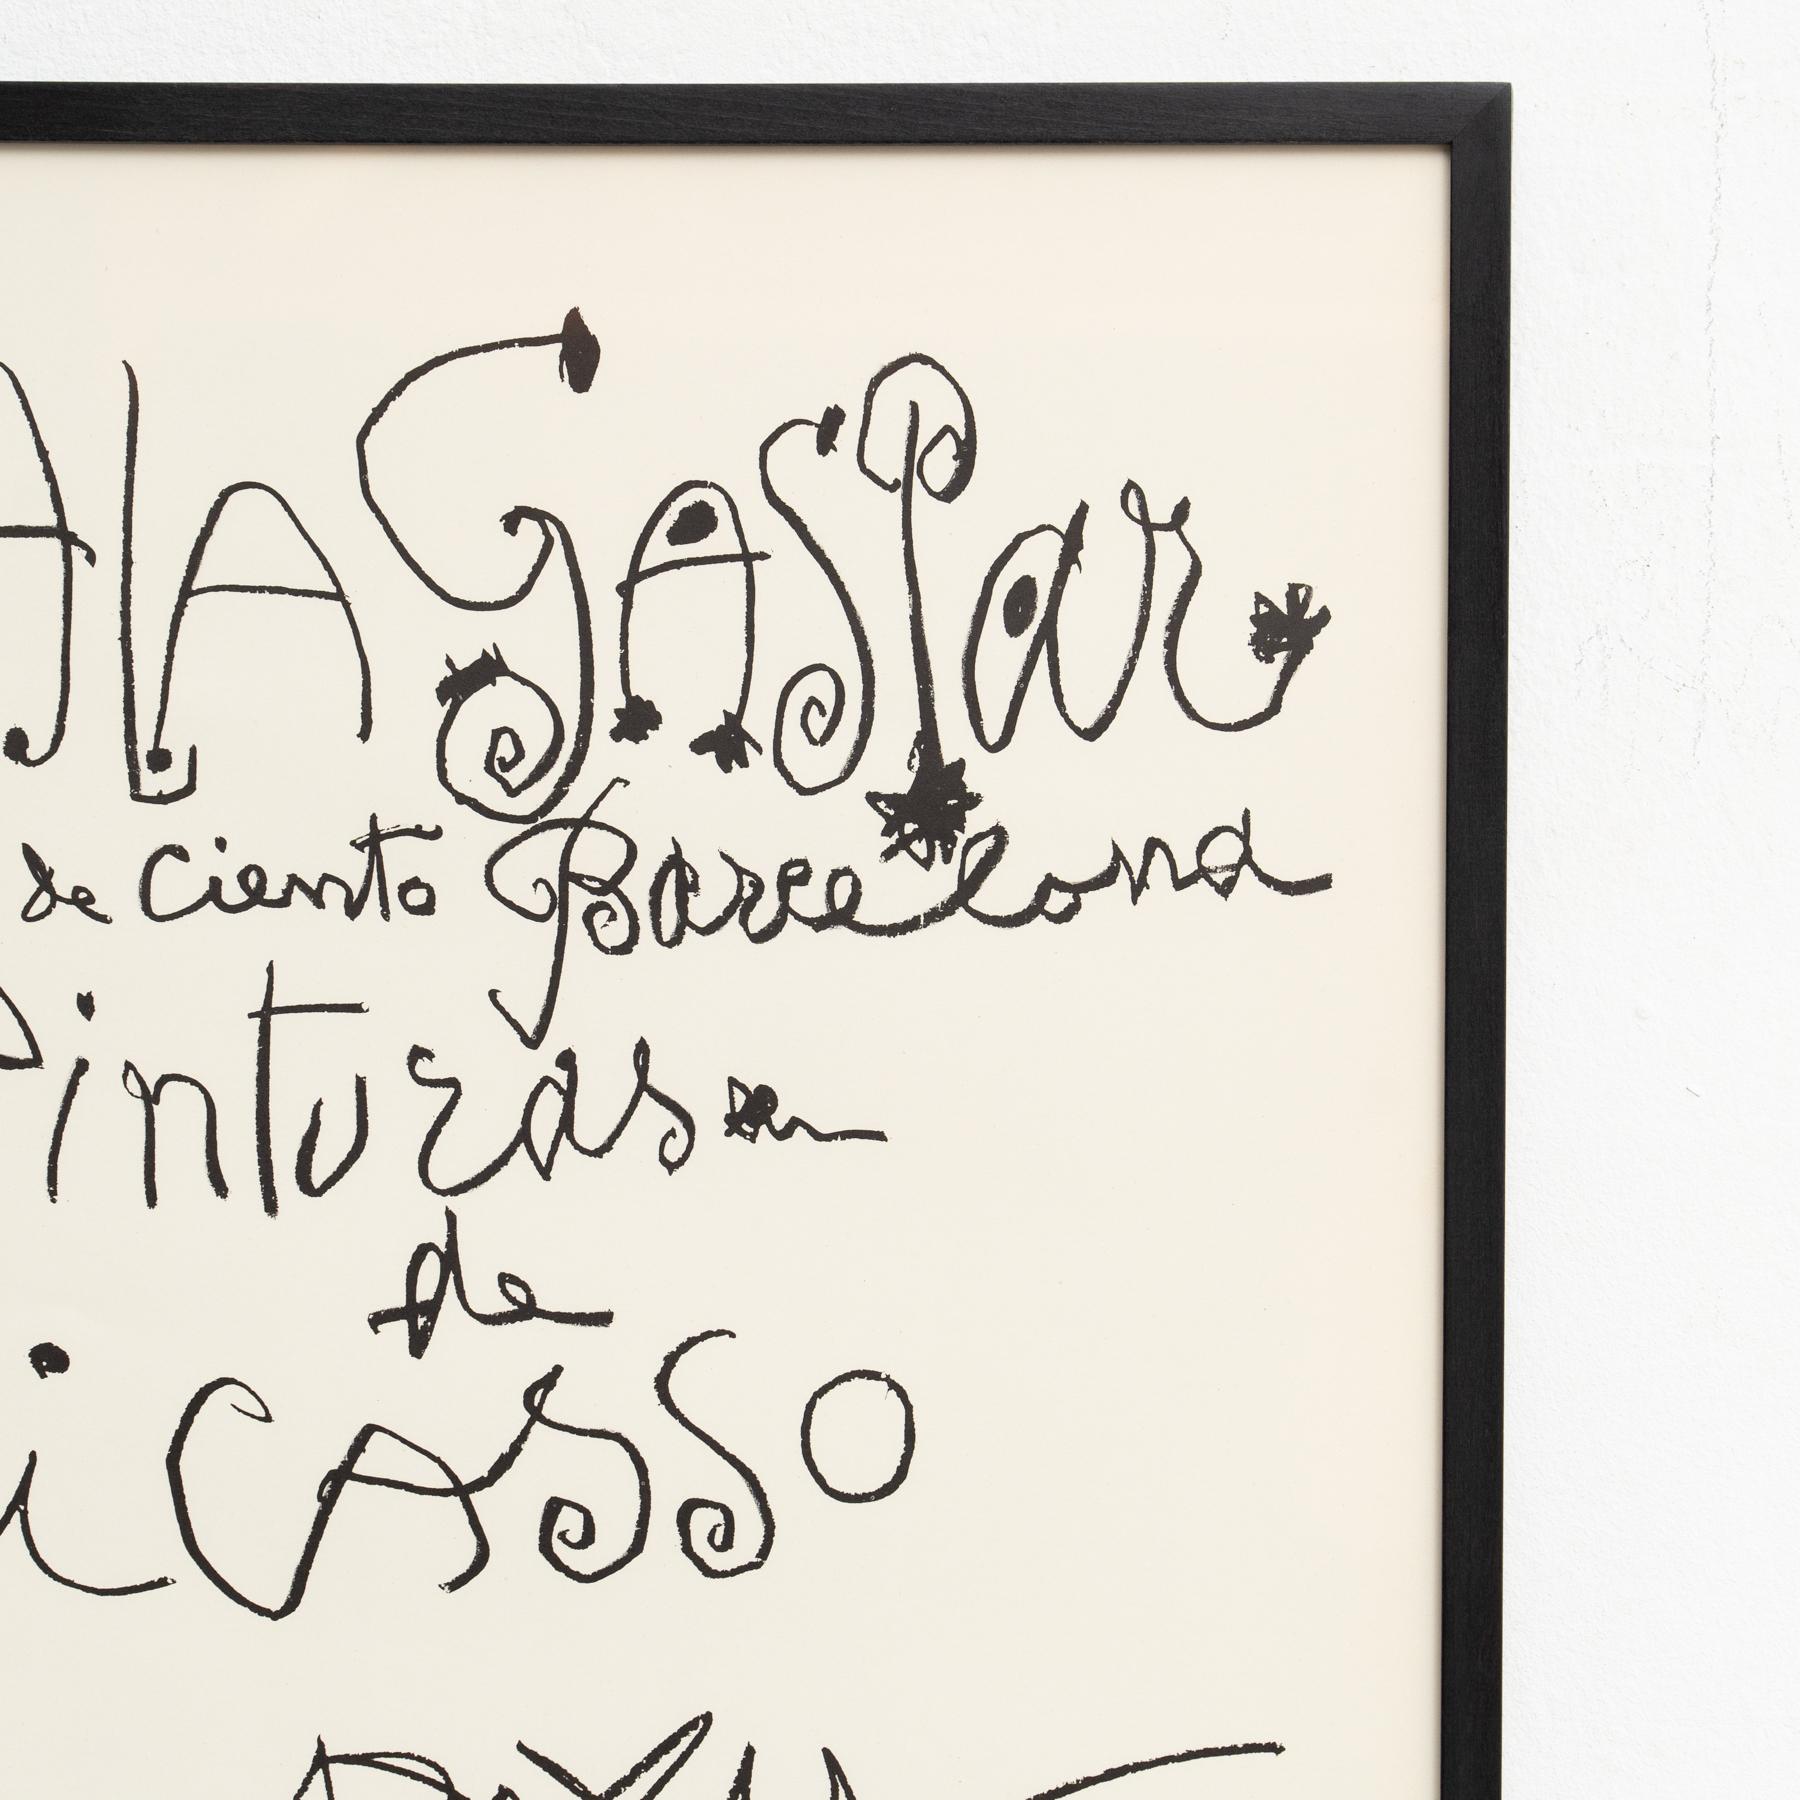 ALA GASPar
de ciento Barcelona
Pinturas
de
iCASSO